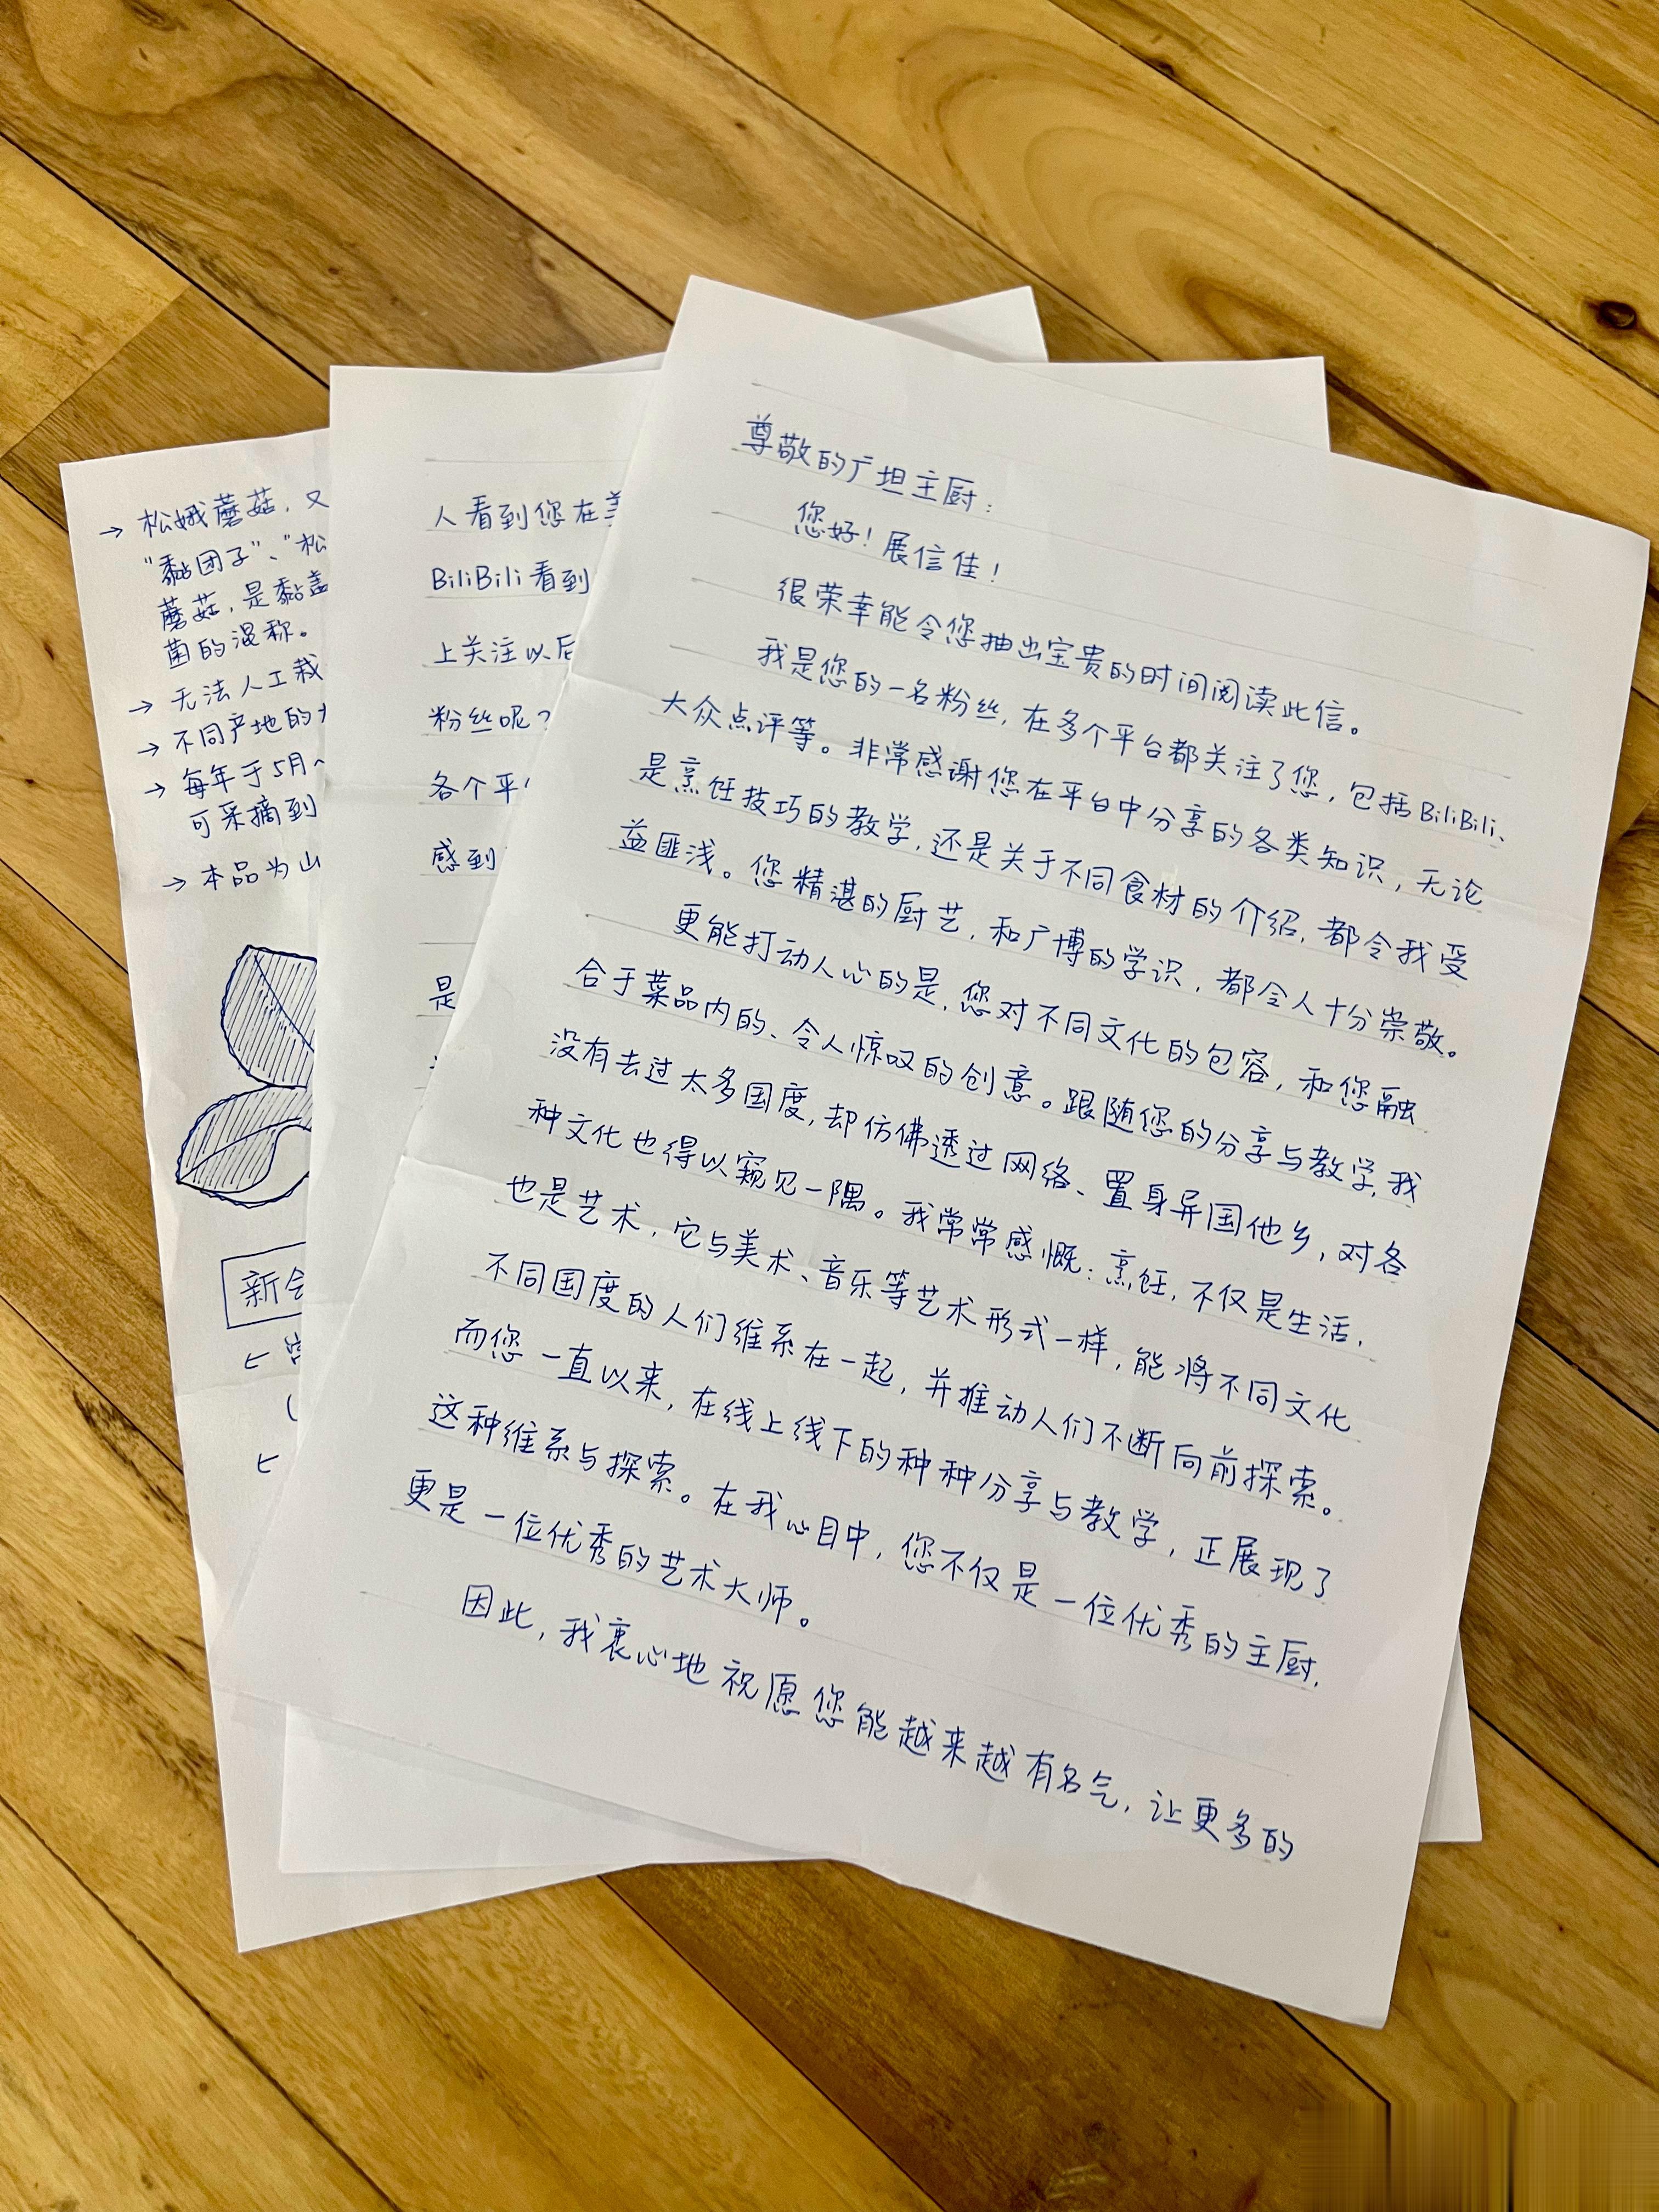 尊敬的广坦主厨:
您好!展信佳!
很荣幸能令您抽出宝贵的时间阅读此信。
我是您的一名粉丝,在多个平台都关注了您,包括BiliBili、
大众点评等。非常感谢您在平台中分享的各类知识,无论
是烹饪技巧的教学,还是关于不同食材的介绍,都令我受
益匪浅。您精湛的厨艺,和广博的学识,都令人十分崇敬。
更能打动人心的是,您对不同文化的包容,和您融
合于菜品内的、令人惊叹的创意。跟随您的分享与教学,我
没有去过太多国度,却仿佛透过网络、置身异国他乡,对各
种文化也得以窥见一隅。我常常感慨:烹饪,不仅是生活,
也是艺术,它与美术、音乐等艺术形式一样,能将不同文化
不同国度的人们维系在一起,并推动人们不断向前探索。
而您一直以来,在线上线下的种种分享与教学,正展现了
这种维系与探索。在我心目中,您不仅是一位优秀的主厨,
更是一位优秀的艺术大师。
因此,我衷心地祝愿您能越来越有名气,让更多的
人看到您在美
BiliBili看到
上关注以后
粉丝呢?
各个平
感到
是
→ 松娥蘑菇,又
"黏团子"、"松
蘑菇,是黏盖
菌的混称。
→ 无法人工栽
→ 不同产地的
→ 每年于5月~
可采摘到
→ 本品为山
新会